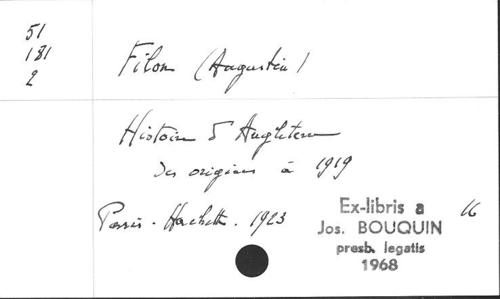 51
181
2
Filon (Augustin)
Histoire d'Angleterre
des origines à 1919
Paris. Hachette. 1923
16
Ex-libris a
Jos. BOUQUIN
presb. legatis
1968